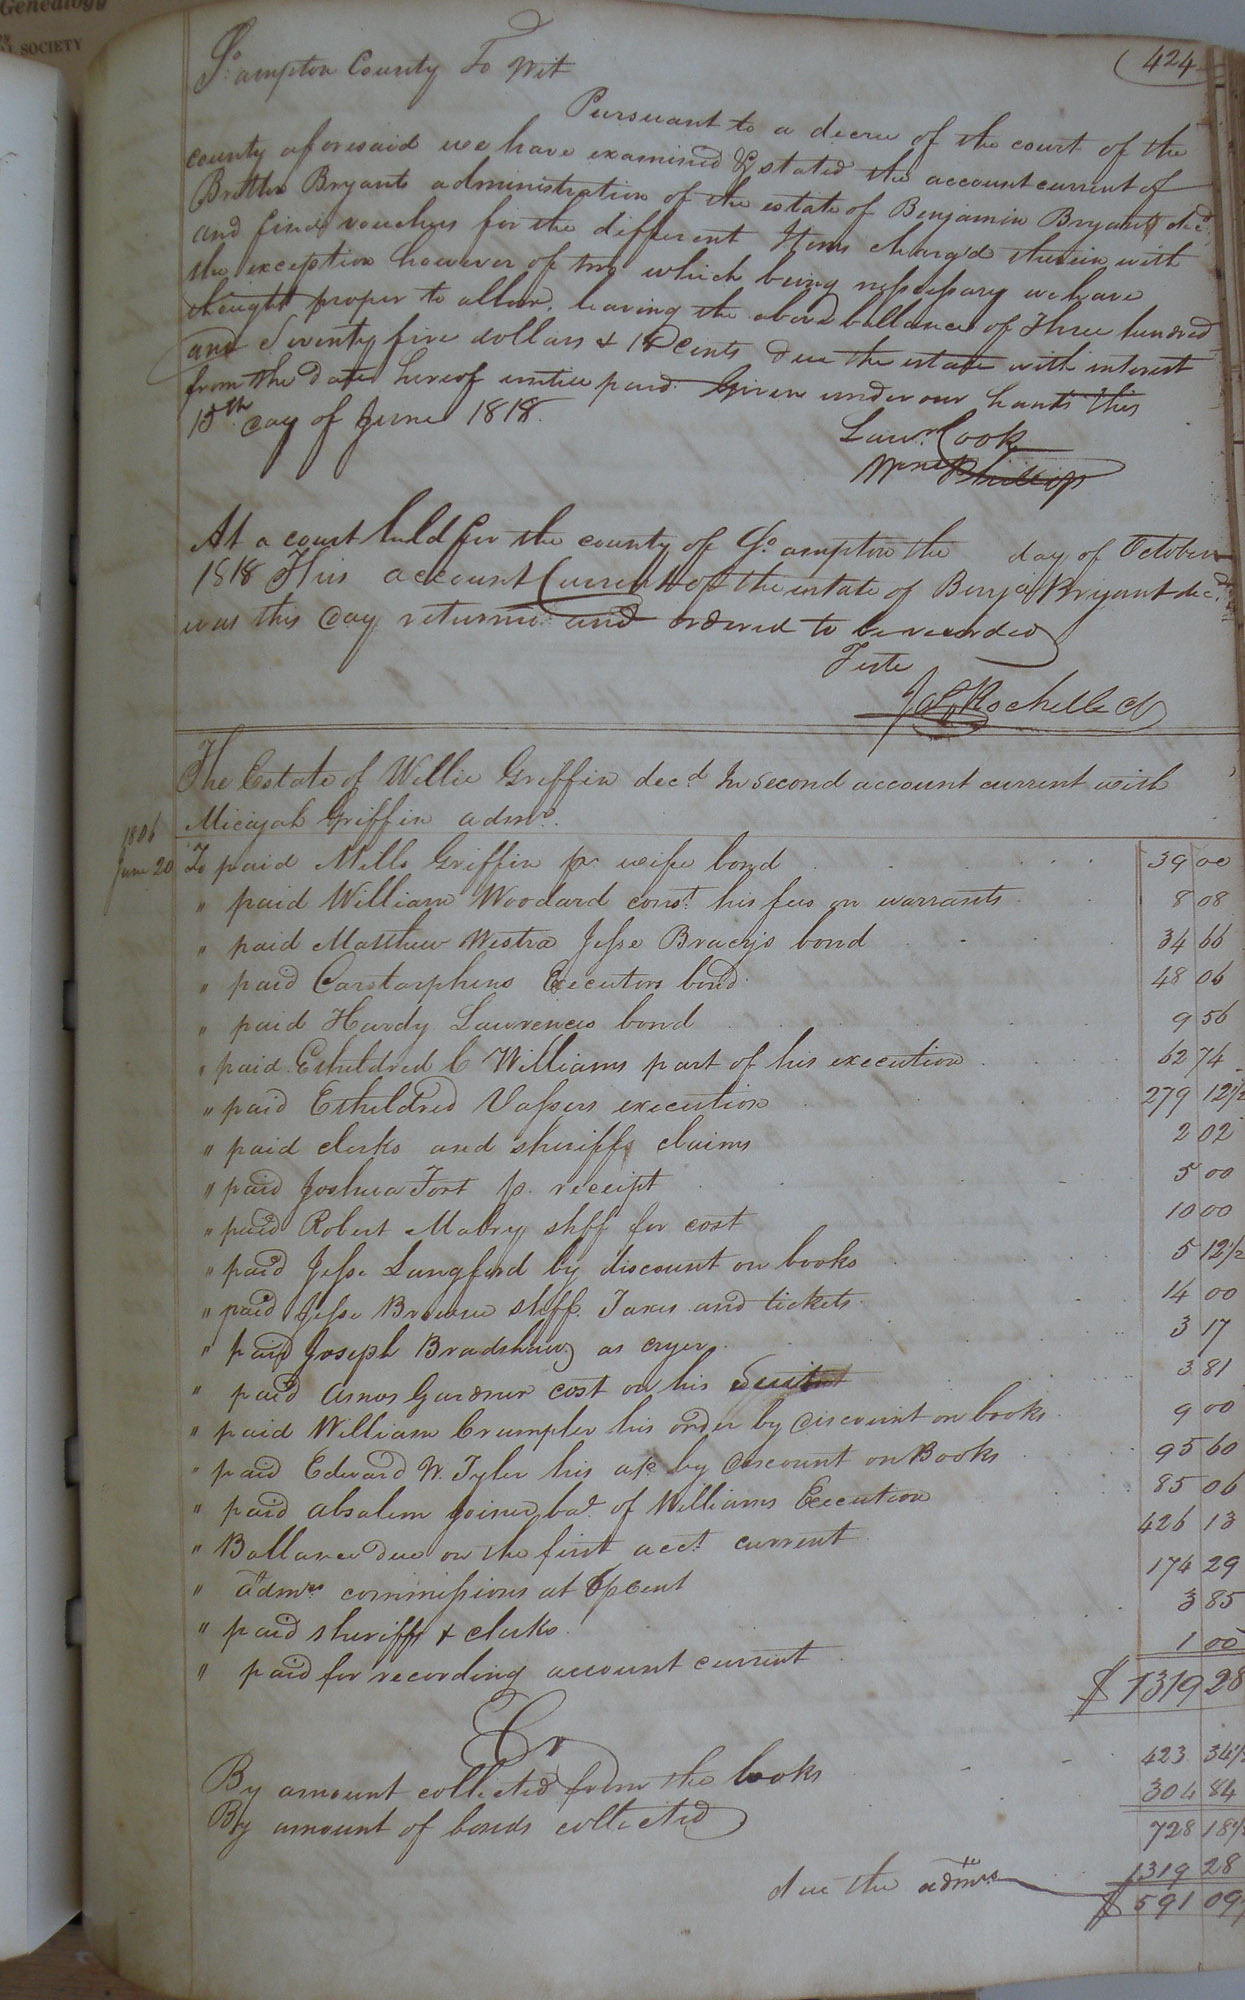 Genealogy
SOCIETY
424
So. ampton County To Wit
Pursuant to a decree of the court of the
county aforesaid we have examined & stated the account current of
Britton Bryants administration of the estate of Benjamin Bryant decd.
and find vouchers for the different Items charg'd therein with
the exception however of two which being nessessary we have
thought proper to allow, leaving the above ballance of Three hundred
and Seventy five dollars & 18 Cents due the estate with interest
from the date hereof untill paid. Given under our hands this
15th. day of June 1818.
Lawr. Cook
Phillips
At a court held for the county of So. ampton the day of October
1818 This account Current of the estate of Benja. Bryant decd.
was this day returned and ordered to be recorded
Teste
Jas Rochelle Cl
The Estate of Willie Griffin decd. In Second account current with
Micajah Griffin admr.
1806
June 20 To paid Mills Griffin pr. wife bond 39 00
" paid William Woodard const. his fees on warrants 8 08
" paid Matthew Westra Jesse Bracys bond 34 66
" paid Carstarphens Executors bond 48 06
" paid Hardy Lawrences bond 9 56
" paid Etheldred C Williams part of his execution 62 74
" paid Etheldred Vassers execution 279 12 1/2
" paid clerks and sheriffs claims 2 02
" paid Joshua Fort p. receipt 5 00
" paid Robert Mabry shff for cost 10 00
" paid Jesse Langford by discount on books 5 12 1/2
" paid Jesse Browne shff. Taxes and tickets 14 00
" paid Joseph Bradshaw as cryer 3 17
" paid Amos Gardner cost on his Suit 3 81
" paid William Crumpler his order by discount on books 9 00
" paid Edward W. Tyler his a/c by discount on Books 95 60
" paid Absalem Joiner bal. of Williams Execution 85 06
" Ballance due on the first acct. current 426 13
" admrs. commissions at p Cent 174 29
" paid sheriff & clerks 3 85
" paid for recording account current 1 00
$ 1319 28
Cr
By amount collected from the books 423 34 1/2
By amount of bonds collected 304 84
728 18 1/2
1319 28
due the admrs $ 591 09